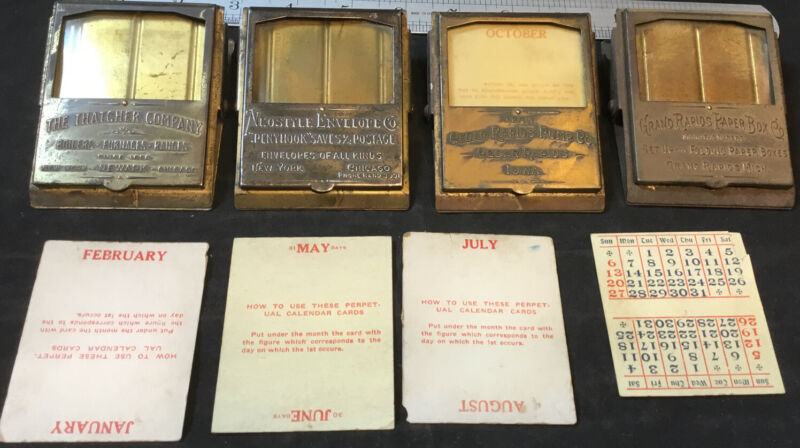 THE THATCHER COMPANY
BOILERS - FURNACES - RANGES
SINCE 1850
NEW YORK - NEWARK - CHICAGO
APOSTYLE ENVELOPE CO.
"PENTHOOK" SAVES ½ POSTAGE
ENVELOPES OF ALL KINDS
NEW YORK CHICAGO
OCTOBER
CEDAR RAPIDS PUMP CO.
CEDAR RAPIDS
IOWA
GRAND RAPIDS PAPER BOX CO
SET UP AND FOLDING PAPER BOXES
GRAND RAPIDS MICH
FEBRUARY
HOW TO USE THESE PERPET-
UAL CALENDAR CARDS
Put under the month the card with
the figure which corresponds to the
day on which the 1st occurs.
JANUARY
31 MAY DAYS
HOW TO USE THESE PERPET-
UAL CALENDAR CARDS
Put under the month the card with
the figure which corresponds to the
day on which the 1st occurs.
30 JUNE DAYS
JULY
HOW TO USE THESE PERPET-
UAL CALENDAR CARDS
Put under the month the card with
the figure which corresponds to the
day on which the 1st occurs.
AUGUST
Sun Mon Tue Wed Thu Fri Sat
1 2 3 4 5
6 7 8 9 10 11 12
13 14 15 16 17 18 19
20 21 22 23 24 25 26
27 28 29 30 31
Sun Mon Tue Wed Thu Fri Sat
1 2 3 4
5 6 7 8 9 10 11
12 13 14 15 16 17 18
19 20 21 22 23 24 25
26 27 28 29 30 31